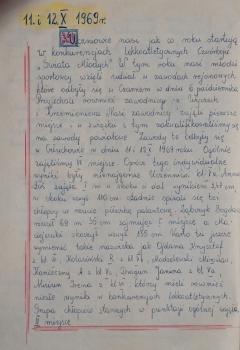 11. i 12. X 1969r.
Uczniowie nasi jak co roku startują
w konkurencjach lekkoatletycznych Czwórboju
„Świata Młodych". W tym roku nasi młodzi
sportowcy wzięli udział w zawodach rejonowych
które odbyły się w Czarnem w dniu 6 października
Przyjechali również zawodnicy z
i Krzemieniewa. Nasi zawodnicy zajęli pierwsze
miejsce i w związku z tym zakwalifikowaliśmy się
na zawody powiatowe. Zawody te odbyły się
w Człuchowie w dniu 11. i 12. X 1969 roku. Ogólnie
zajęliśmy VI miejsce. Oprócz tego indywidualne
wyniki były następujące. Uczennica kl. Anna
zajęła I m. w skoku w dal wynikiem 3,47 cm,
w skoku wzwyż 110 cm. Ładnie spisali się też
chłopcy w rzucie piłeczką palantową. Zabrocki Bogdan
rzucił 68 m 50 cm zajmując I miejsce a
skoczył wzwyż 135 cm. Warto tu jeszcze
wymienić takie nazwiska jak Gdana Krzysztof
z kl. R. z kl. VI, Modzelewski
Konieczny A z kl. Dragun Janina z kl.
Irena z kl. którzy mieli również
niezłe wyniki w konkurencjach lekkoatletycznych.
Grupa chłopców starszych w punktacji ogólnej zajęła
miejsce